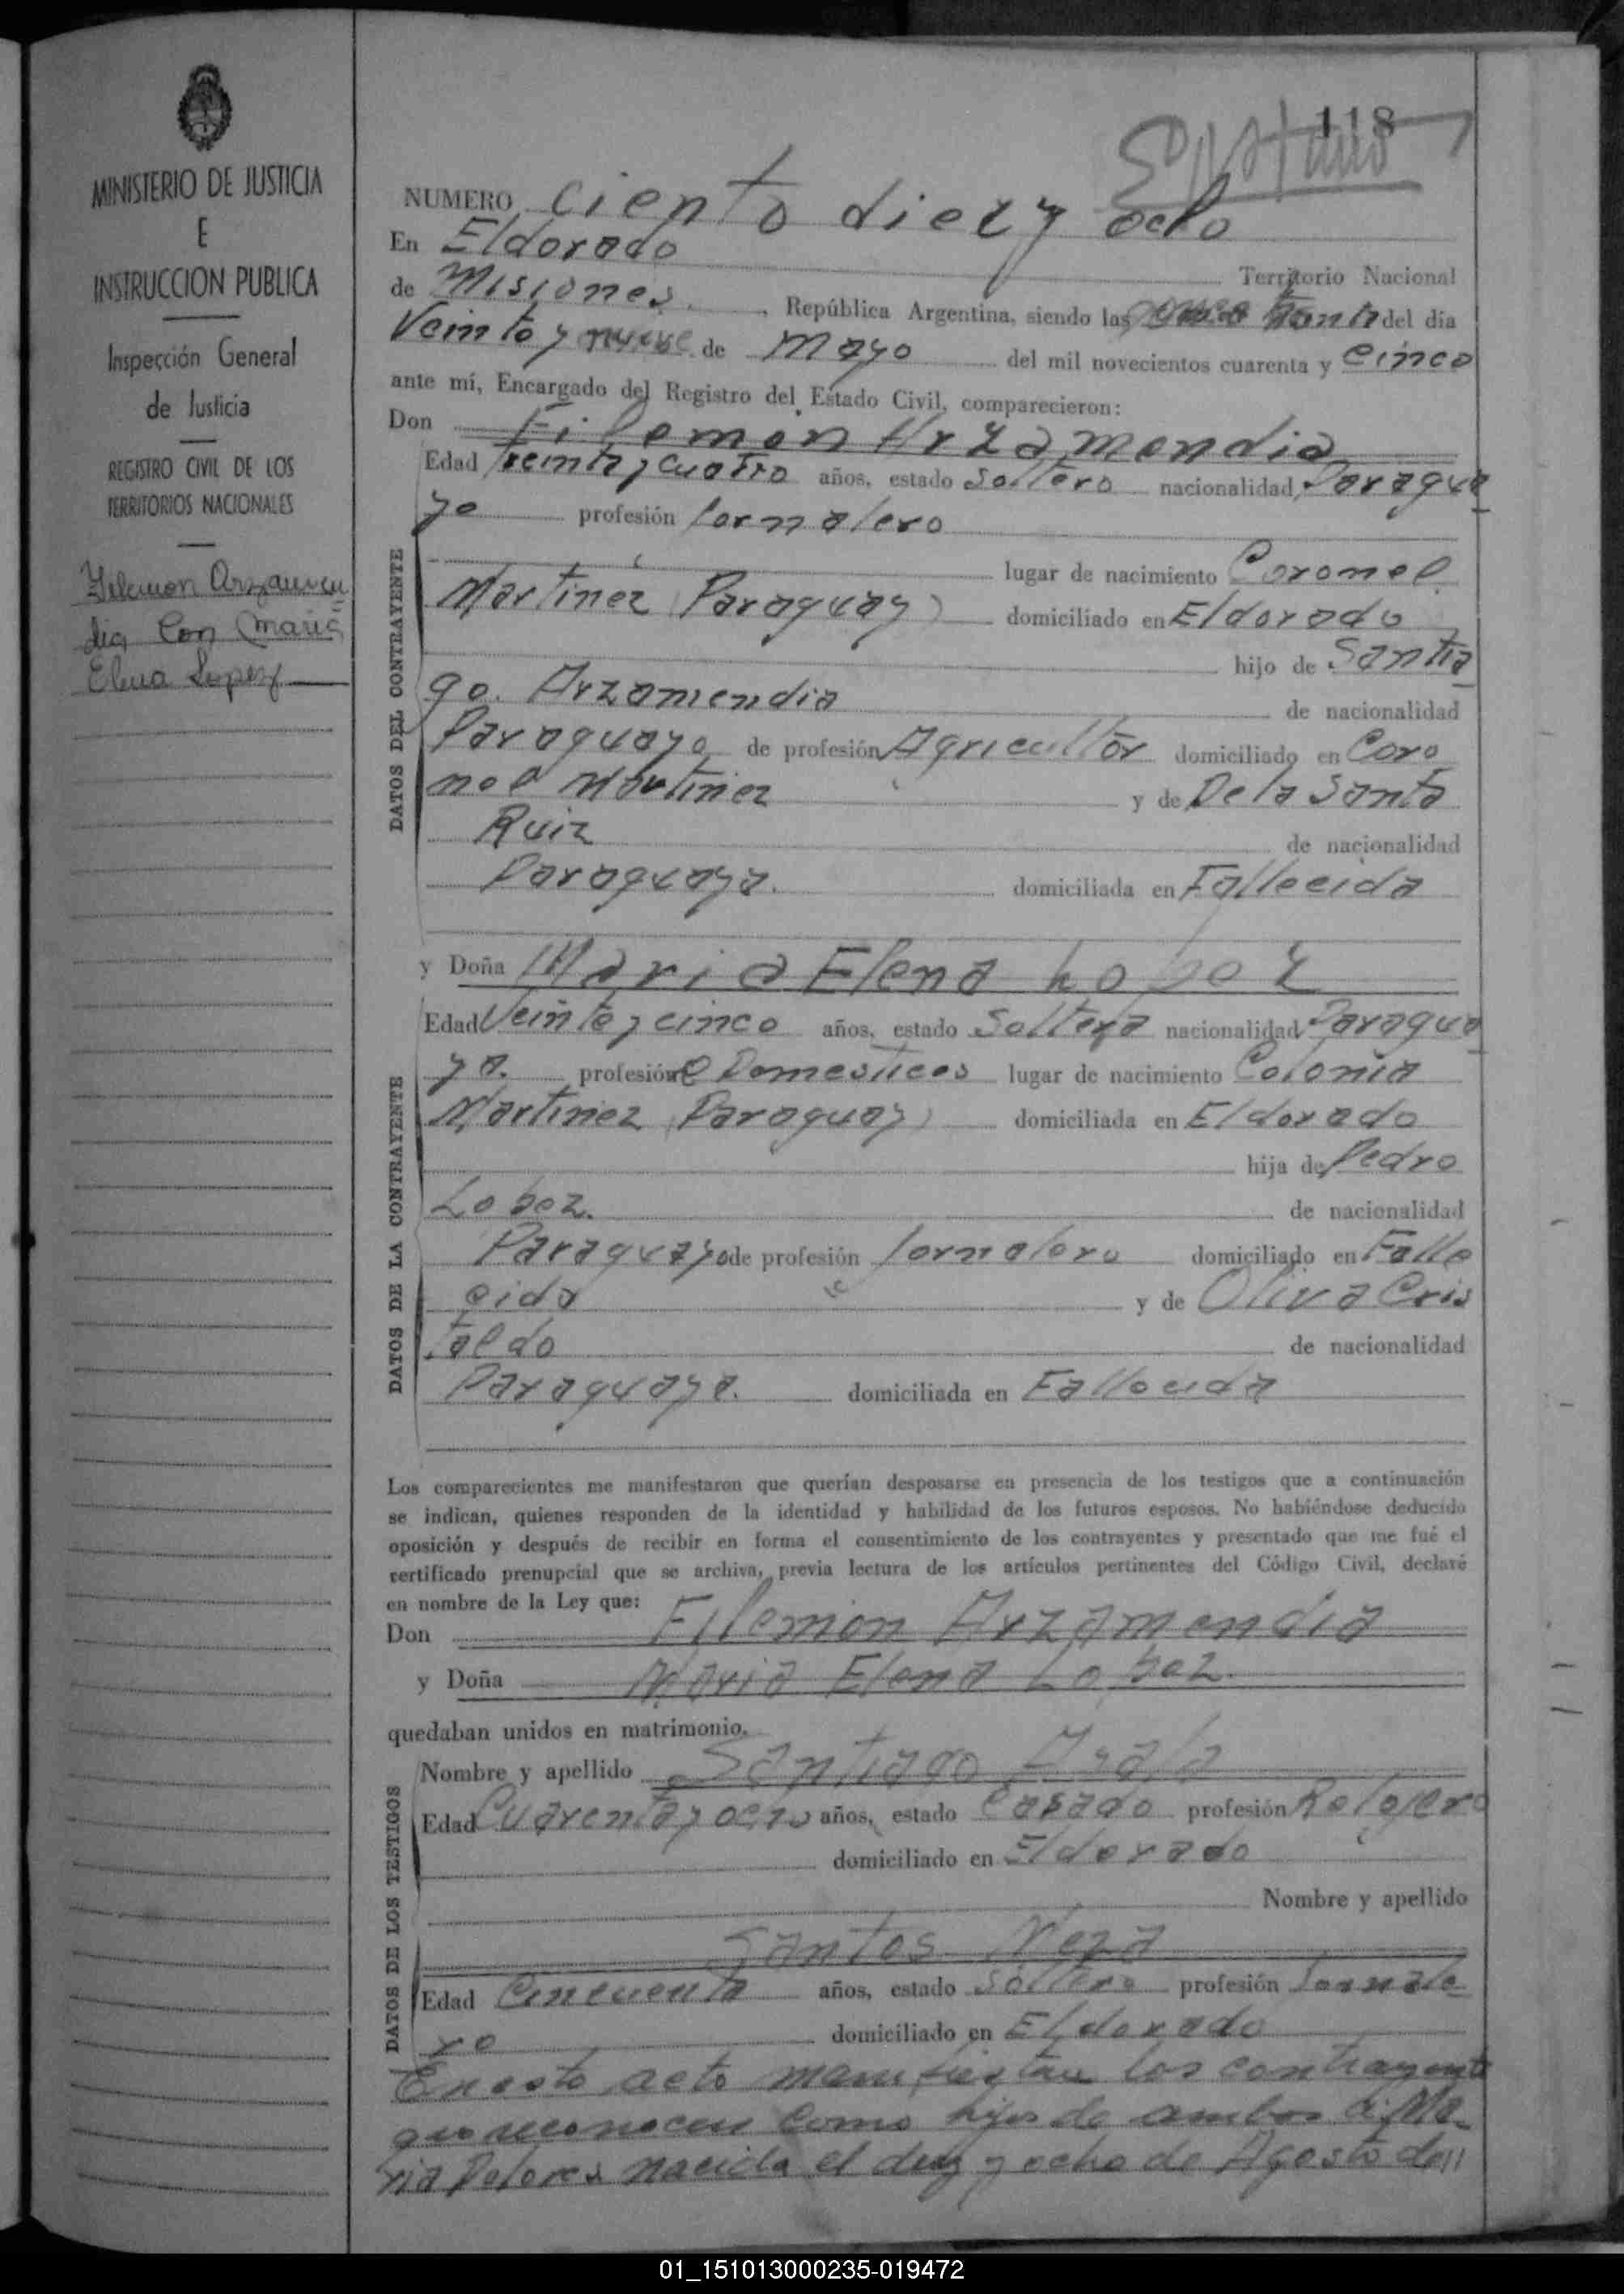 MINISTERIO DE JUSTICIA
E
INSTRUCCION PUBLICA
Inspección General
de Justicia
REGISTRO CIVIL DE LOS
TERRITORIOS NACIONALES
Filemon Arzamen
dia Con Maria
Elena Lopez
118
NUMERO ciento diez y ocho
En Eldorado
Territorio Nacional
de Misiones, República Argentina, siendo las del día
Veinte y nueve de Mayo del mil novecientos cuarenta y Cinco
ante mí, Encargado del Registro del Estado Civil, comparecieron:
Don Filemon Arzamendia
DATOS DEL CONTRAYENTE
Edad treinta y cuatro años, estado Soltero nacionalidad Paragua
yo profesión Jornalero
lugar de nacimiento Coronel
Martinez (Paraguay) domiciliado en Eldorado
hijo de Santia
go. Arzamendia de nacionalidad
Paraguayo de profesión Agricultor domiciliado en Coro
nel Martinez y de De la Santa
Ruiz de nacionalidad
Paraguaya. domiciliada en Fallecida
y Doña Maria Elena Lopez
DATOS DE LA CONTRAYENTE
Edad Veinte y cinco años, estado Soltera nacionalidad Paragua
ya. profesión Q Domesticos lugar de nacimiento Colonia
Martinez (Paraguay) domiciliada en Eldorado
hija de Pedro
Lopez. de nacionalidad
Paraguayo de profesión Jornalero domiciliado en Falle
cido y de Oliva Cris
taldo de nacionalidad
Paraguaya. domiciliada en Fallecida
Los comparecientes me manifestaron que querían desposarse en presencia de los testigos que a continuación
se indican, quienes responden de la identidad y habilidad de los futuros esposos. No habiéndose deducido
oposición y después de recibir en forma el consentimiento de los contrayentes y presentado que me fué el
certificado prenupcial que se archiva, previa lectura de los artículos pertinentes del Código Civil, declaré
en nombre de la Ley que:
Don Filemon Arzamendia
y Doña Maria Elena Lopez.
quedaban unidos en matrimonio.
DATOS DE LOS TESTIGOS
Nombre y apellido Santiago Ayala
Edad Cuarenta y ocho años, estado Casado profesión Relojero
domiciliado en Eldorado
Nombre y apellido
Santos Vera
Edad Cincuenta años, estado soltero profesión Jornale
ro domiciliado en Eldorado
En este acto manifiestan los contrayente
que reconocen como hijos de ambos a: Ma-
ria Dolores nacida el diez y ocho de Agosto de//
01_151013000235-019472